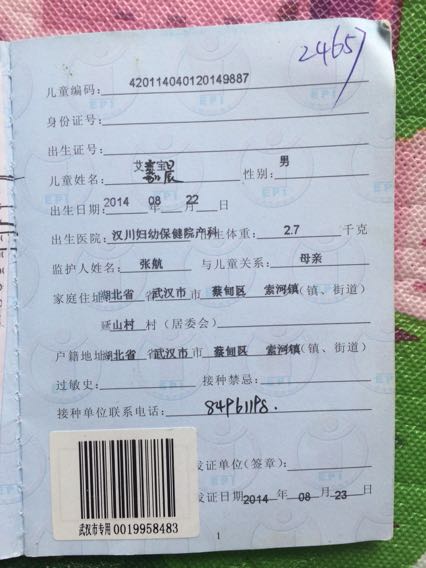 24657
儿童编码: 420114040120149887
身份证号:
出生证号:
儿童姓名: 艾 宝 辰 性别: 男
出生日期: 2014 年 08 月 22 日
出生医院: 汉川妇幼保健院产科 生体重: 2.7 千克
监护人姓名: 张航 与儿童关系: 母亲
家庭住址 湖北省 省 武汉市 市 蔡甸区 索河镇 (镇、街道)
山村 村 (居委会)
户籍地址 湖北省 省 武汉市 市 蔡甸区 索河镇 (镇、街道)
过敏史: 接种禁忌:
接种单位联系电话: 84961198.
发证单位(签章):
发证日期 2014 年 08 月 23 日
武汉市专用 0019958483
1